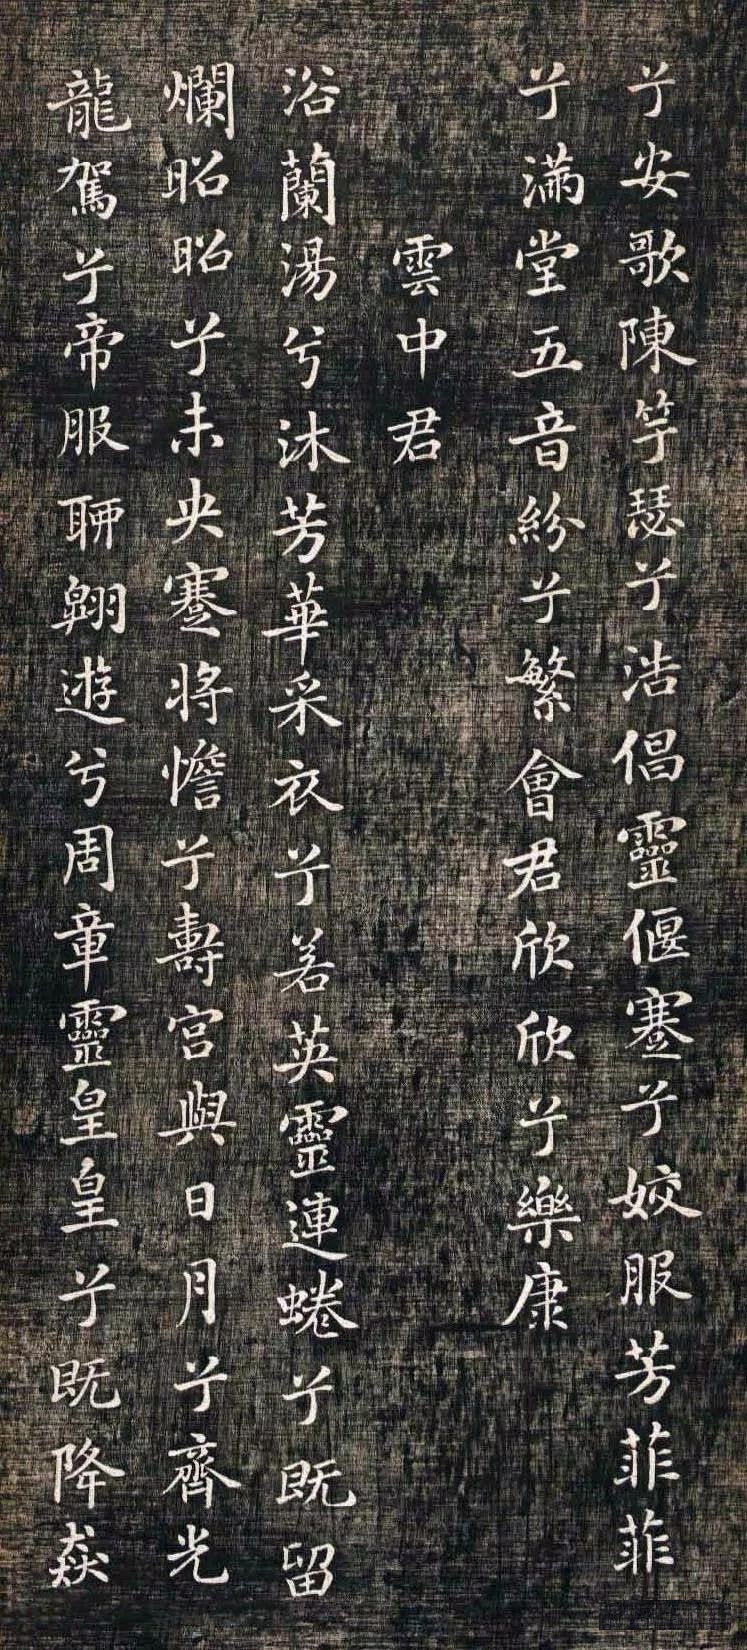 兮安歌陳竽瑟兮浩倡靈偃蹇兮姣服芳菲菲
兮滿堂五音紛兮繁會君欣欣兮樂康
雲中君
浴蘭湯兮沐芳華采衣兮若英靈連蜷兮既留
爛昭昭兮未央蹇將憺兮壽宮與日月兮齊光
龍駕兮帝服聊翱遊兮周章靈皇皇兮既降猋